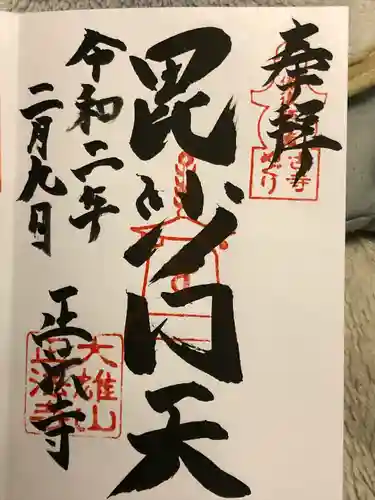 奉拝
毘沙门天
令和二年
二月九日
正法寺
大雄山
正法寺